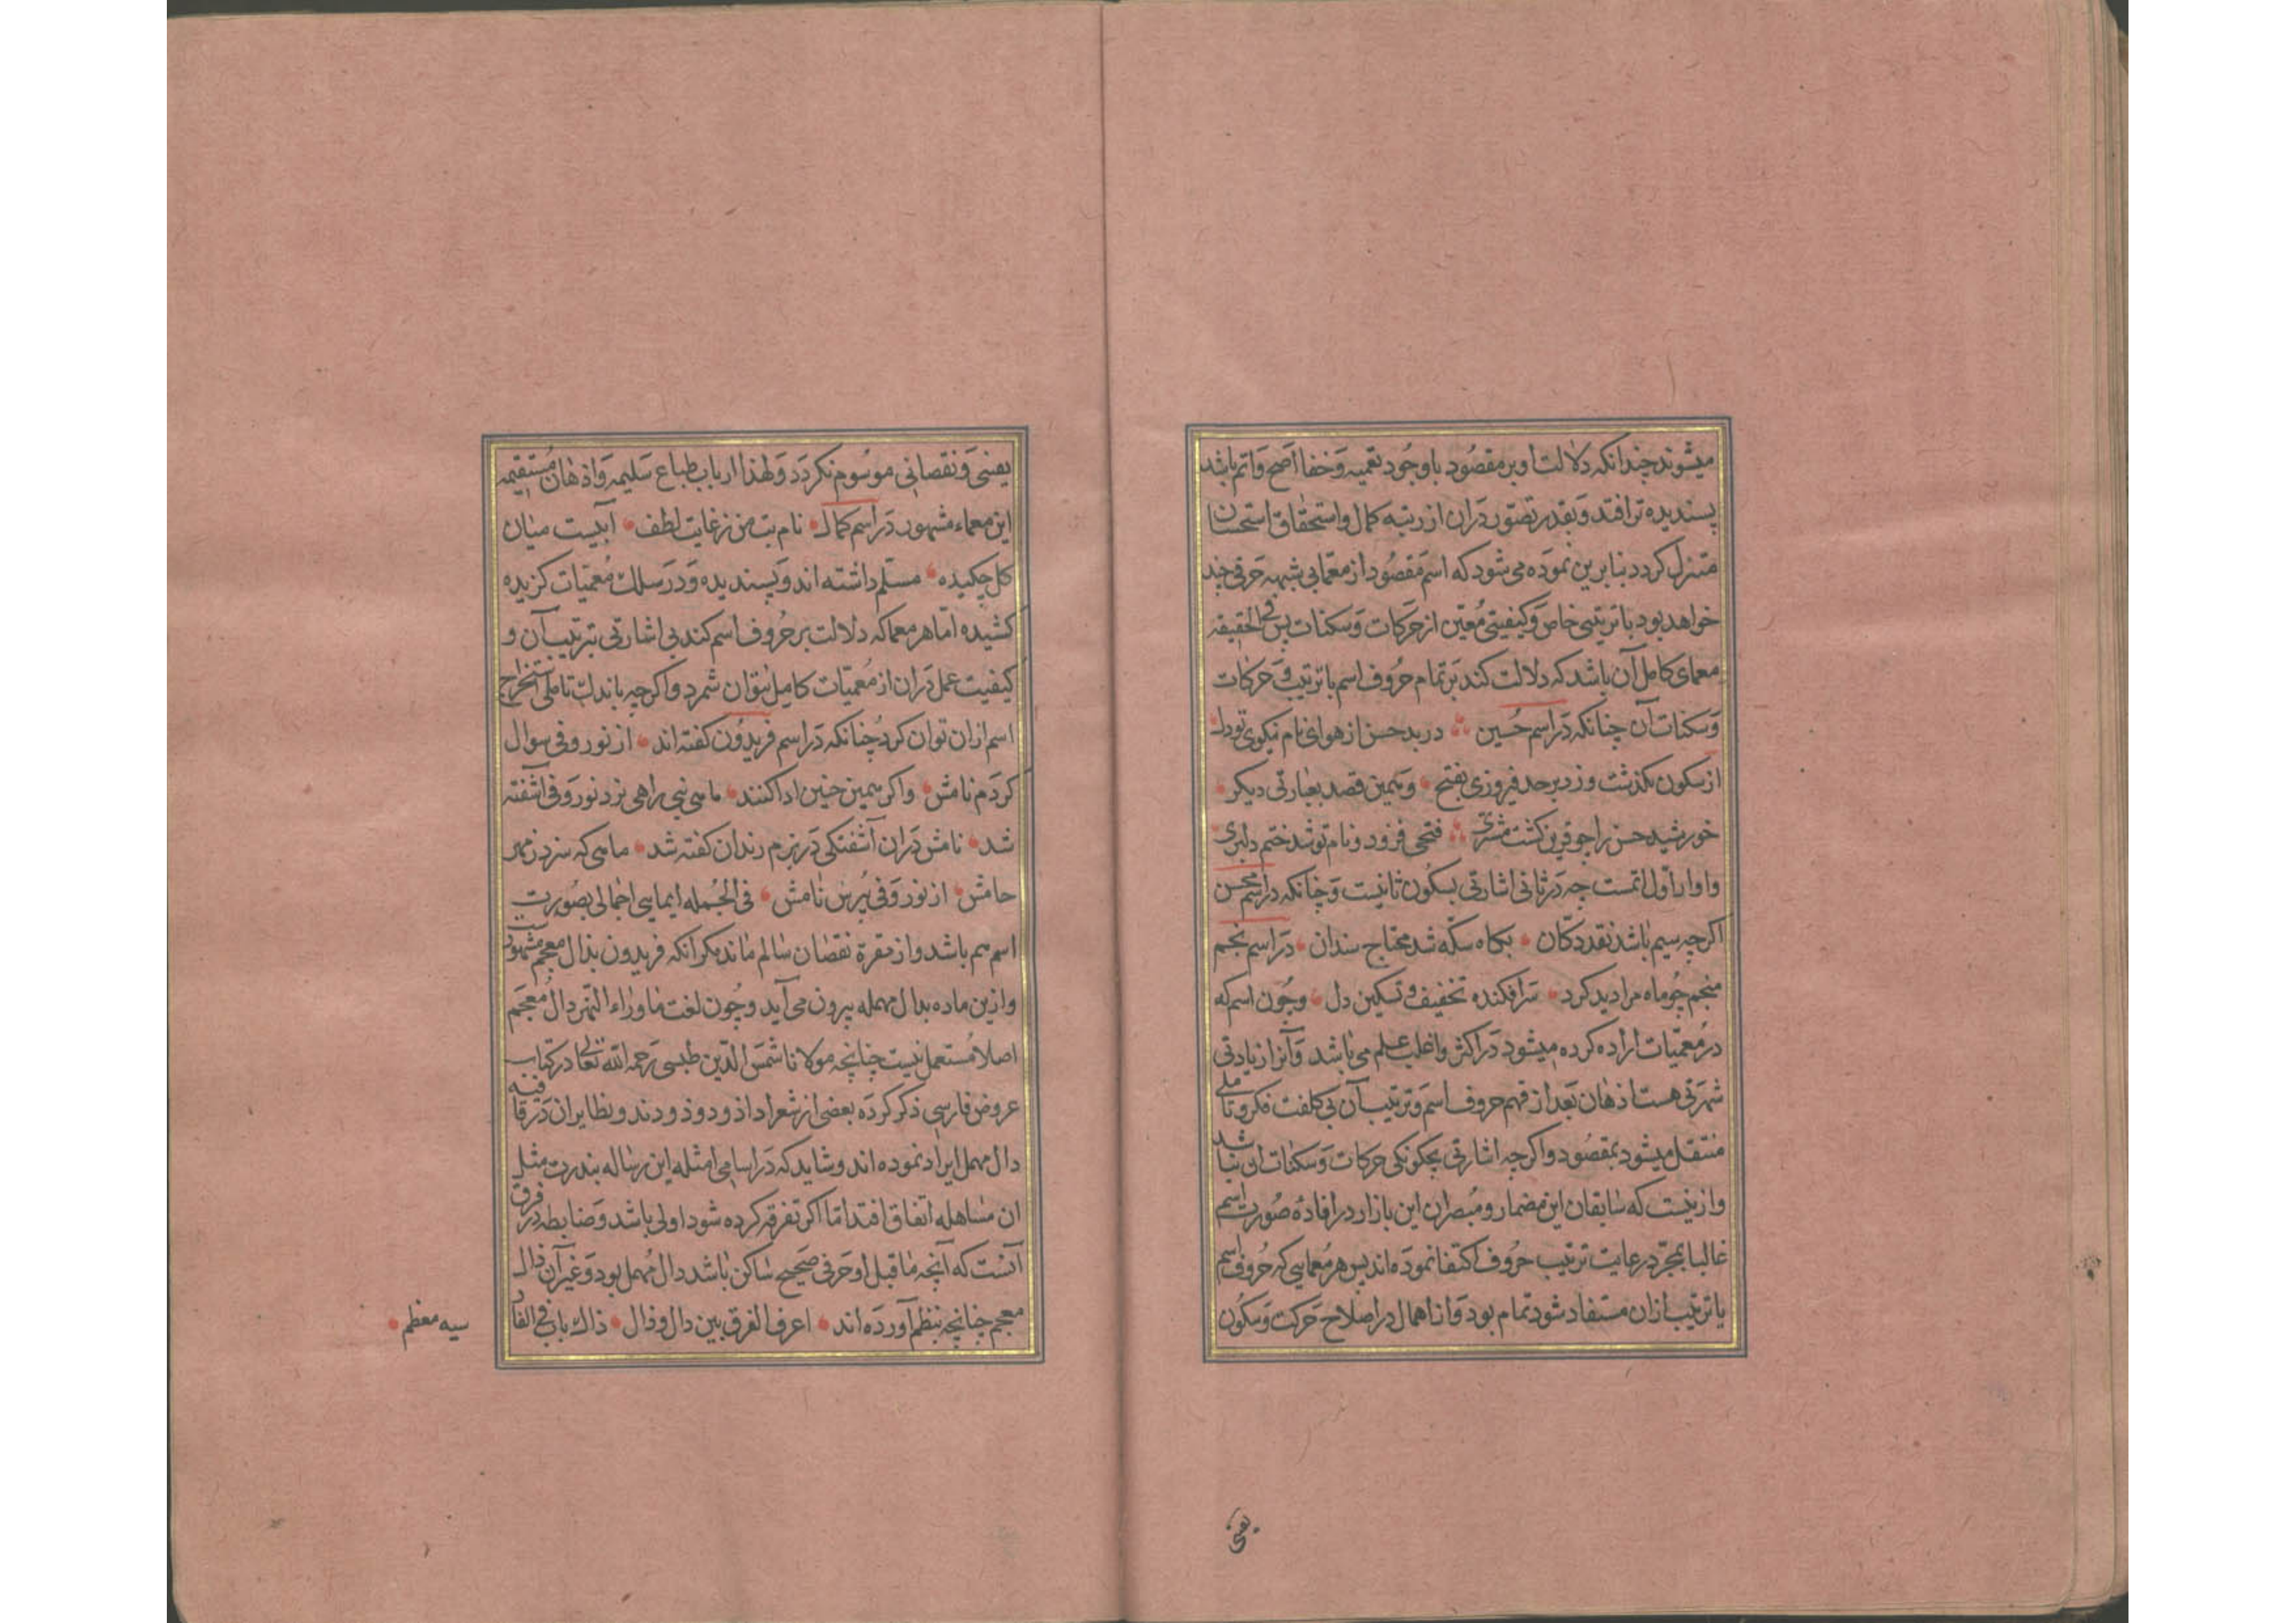 میشوند چندانکه دلالت او بر مقصود با وجود تعمیه و خفا اصح و اتم باشد
پسندیده تر افتد و بقدر تصور دران از رتبه کمال و استحقاق استحسان
متنزل کردد بنابرین نموده می شود که اسم مقصود از معمایی بشبهه حرفی چند
خواهد بود با ترتیبی خاص و کیفیتی معین از حرکات و سکنات پس فی الحقیقه
معمای کامل آن باشد که دلالت کند بر تمام حروف اسم با ترتیب و حرکات
و سکنات آن چنانکه در اسم حسین در بد حسن از هوای نام نیکوی تو دل
از سکون بگذشت و زد بر حد فیروزی بفتح و همین قصد بعبارتی دیکر
خورشید حسن را چو قرین کشت مشتری فتحی فزود و نام تو شد ختم دلبری
و او از اول اتمست چه در ثانی اشارتی بسکون ثانیست و چنانکه در اسم محسن
اکرچه سیم باشد نقد دکان بکاه سکه شد محتاج سندان در اسم نجم
منجم چو ماه مرا دید کرد سرافکنده تخفیف و تسکین دل و چون اسم که
در معمیات اراده کرده میشود در اکثر و اغلب علم می باشد و آنرا زیادتی
شهرتی هست اذهان بعد از فهم حروف اسم و ترتیب آن بی کلفت فکر و تاملی
منتقل میشود بمقصود و اکرچه اشارتی بچکونکی حرکات و سکنات ان نباشد
و ازینست که سابقان این مضمار و مبصران این بازار در افاده صورت اسم
غالبا بمجرد رعایت ترتیب حروف اکتفا نموده اند پس هر معمایی که حروف اسم
با ترتیب ازان مستفاد شود تمام بود و از اهمال در اصلاح حرکت و سکون
یعنی
بفنی و نقصانی موسوم نکردد و لهذا ارباب طباع سلیمه و اذهان مستقیمه
این معماء مشهور در اسم کمال نام بت من ز غایت لطف آبیست میان
کل چکیده مسلم داشته اند و پسندیده و در سلک معمیات کزیده
کشیده اما هر معما که دلالت بر حروف اسم کند بی اشارتی بترتیب آن و
کیفیت عمل دران از معمیات کامل نتوان شمرد و اکرچه باندک تاملی استخراج
اسم ازان توان کرد چنانکه در اسم فریدون کفته اند از نور و فی سوال
کردم نامش و اکر همین چنین ادا کنند ماهی نی راهی نزد نور و فی آشفته
شد نامش دران آشفتکی در بزم رندان کفته شد ماهی که سزد ز مهر
جامش از نور و فی بپرس نامش فی الجمله ایمایی اجمالی بصورت
اسم هم باشد و از معرة نقصان سالم ماند مکر آنکه فریدون بذال معجم مشهور
و ازین ماده بدال مهمله بیرون می آید و چون لغت ماوراء النهر دال معجم
اصلا مستعمل نیست چنانچه مولانا شمس الدین طبسی رحمه الله تعالی در کتاب
عروض فارسی ذکر کرده بعضی از شعرا داذ و دوذ و دند و نظایر ان در قافیه
دال مهمل ایراد نموده اند و شاید که در اسامی امثله این رساله بندرت مثل
ان مساهله اتفاق افتد اما اکر تفرقه کرده شود اولی باشد و ضابطه در فرق
آنست که آنچه ماقبل او حرفی صحیح ساکن باشد دال مهمل بود و غیر آن ذال
معجم چنانچه بنظم آورده اند اعرف الفرق بین دال و ذال ذاک باب فی الفا
سیه معظم